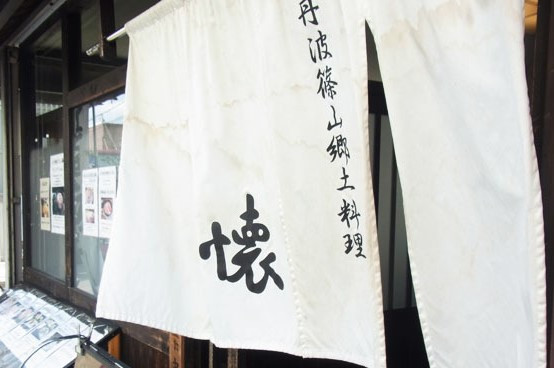 丹波篠山郷土料理
懐